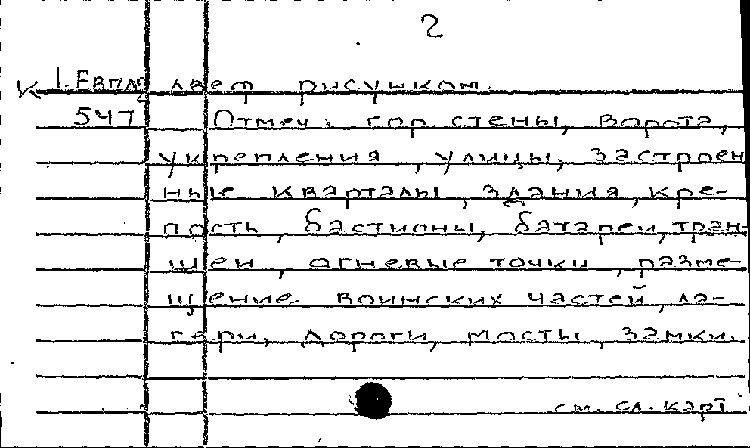 2
К 1-Евпл лест рисунком.
547 Отмеч. гор. стены, ворота,
укрепления, улицы, застроен
ные кварталы, здания, кре-
пость, бастионы, батареи, тран-
шеи, огневые точки, разме-
щение воинских частей, ла-
гери, дороги, мосты, замки.
см. сл. карт.